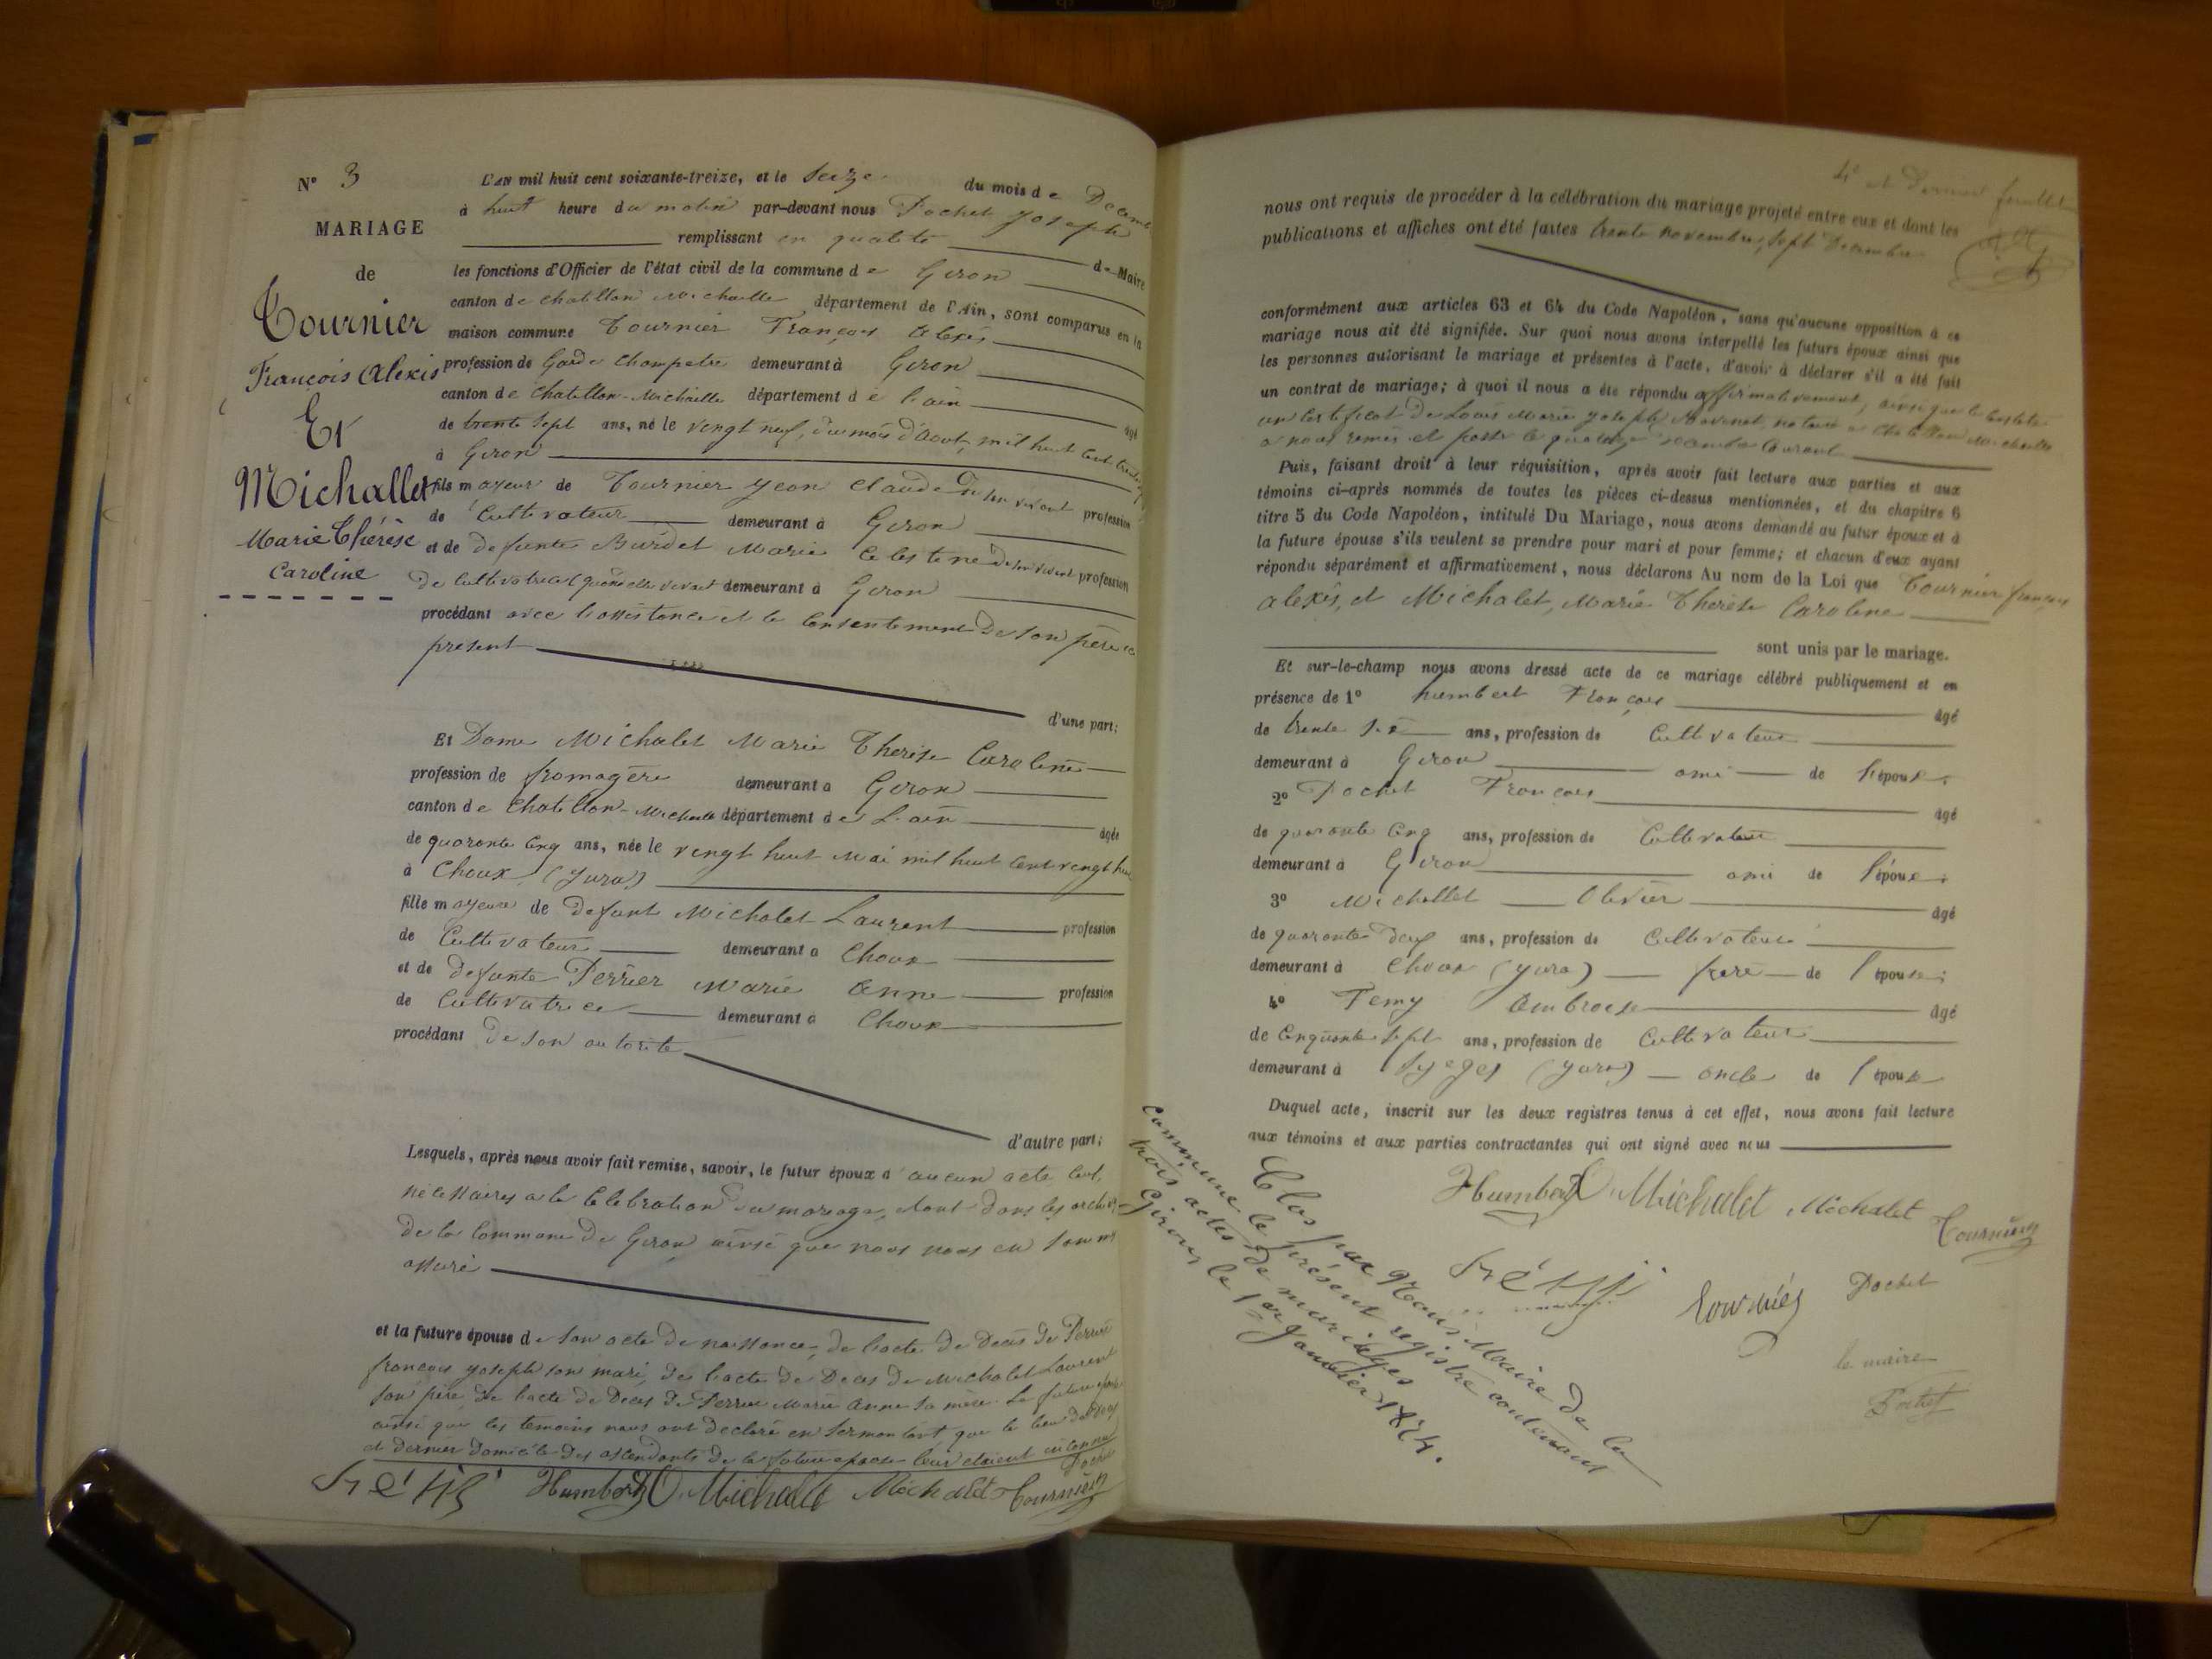 N° 3
MARIAGE
de
Tournier
François Alexis
Et
Michallet
Marie Thérèse
Caroline
L'AN mil huit cent soixante-treize, et le Seize du mois de Decemb
à huit heure du matin par-devant nous Pochet Joseph
remplissant en qualité de Maire
les fonctions d'Officier de l'état civil de la commune de Giron
canton de Chatillon Michaille département de l'Ain, sont comparus en la
maison commune Tournier François Alexis
profession de Garde Champetre demeurant à Giron
canton de Chatillon-Michaille département de l'ain âgé
de trente sept ans, né le vingt neuf, du mois d'Aout, mil huit cent trente
à Giron
fils mayeur de Tournier Jean Claude profession
de Cultivateur demeurant à Giron
et de defunte Burdet Marie Celestine de son vivant profession
de Cultivatrice (quand elle vivait demeurant à Giron
procédant avec l'assistance et le consentement de son père ci
présent
d'une part;
Et Dame Michalet Marie Therese Caroline
profession de fromagère demeurant a Giron
canton de Chatillon-Michaille département de L'ain âgée
de quarante cinq ans, née le vingt huit Mai mil huit cent vingt hui
à Choux (Jura)
fille mayeure de defunt Michalet Laurent profession
de Cultivateur demeurant a Choux
et de defunte Perrier Marie Anne profession
de Cultivatrice demeurant à Choux
procédant de son autorité
d'autre part;
Lesquels, après nous avoir fait remise, savoir, le futur époux d'aucun acte
nécessaires a la Célébration du mariage, étant dans les archives
de la Commune de Giron ainsi que nous nous en sommes
assuré
et la future épouse de son acte de naissance, de l'acte de Decès de Perrier
françois Joseph son mari, de l'acte de Deces de Michalet Laurent
son père, de l'acte de Deces de Perrier Marie Anne sa mère. La future épouse
ainsi que les temoins nous ont declaré en serment que le lieu de deces
et dernier domicile des ascendants de la future epouse leur etaient inconnu
Humbert O. Michalet Michalet Tournier Pochet
4e et Dernier feuillet
nous ont requis de procéder à la célébration du mariage projeté entre eux et dont les
publications et affiches ont été faites trente novembre, sept Decembre
conformément aux articles 63 et 64 du Code Napoléon, sans qu'aucune opposition à ce
mariage nous ait été signifiée. Sur quoi nous avons interpellé les futurs époux ainsi que
les personnes autorisant le mariage et présentes à l'acte, d'avoir à déclarer s'il a été fait
un contrat de mariage; à quoi il nous a été répondu affirmativement, ainsi que le constate
un certificat de Louis Marie Joseph notaire a Chatillon Michaille
a nous remis et porté le courant
Puis, faisant droit à leur réquisition, après avoir fait lecture aux parties et aux
témoins ci-après nommés de toutes les pièces ci-dessus mentionnées, et du chapitre 6
titre 5 du Code Napoléon, intitulé Du Mariage, nous avons demandé au futur époux et à
la future épouse s'ils veulent se prendre pour mari et pour femme; et chacun d'eux ayant
répondu séparément et affirmativement, nous déclarons Au nom de la Loi que Tournier françois
alexis, et Michalet, Marie Therese Caroline
sont unis par le mariage.
Et sur-le-champ nous avons dressé acte de ce mariage célébré publiquement et en
présence de 1° humbert François âgé
de trente six ans, profession de Cultivateur
demeurant à Giron ami de l'époux.
2° Pochet François âgé
de quarante cinq ans, profession de Cultivateur
demeurant à Giron ami de l'époux.
3° Michallet Olivier âgé
de quarante deux ans, profession de Cultivateur
demeurant à Choux (Jura) frere de l'épouse;
4° Ambroise âgé
de Cinquante sept ans, profession de Cultivateur
demeurant à Syeges (Jura) oncle de l'épouse
Duquel acte, inscrit sur les deux registres tenus à cet effet, nous avons fait lecture
aux témoins et aux parties contractantes qui ont signé avec nous
Humbert O. Michalet Michalet Tournier
Tourniér Pochet
le maire
Pochet
Clos par Nous Maire de la
commune le présent registre contenant
trois actes de mariages
Giron le 1er Janvier 1874.